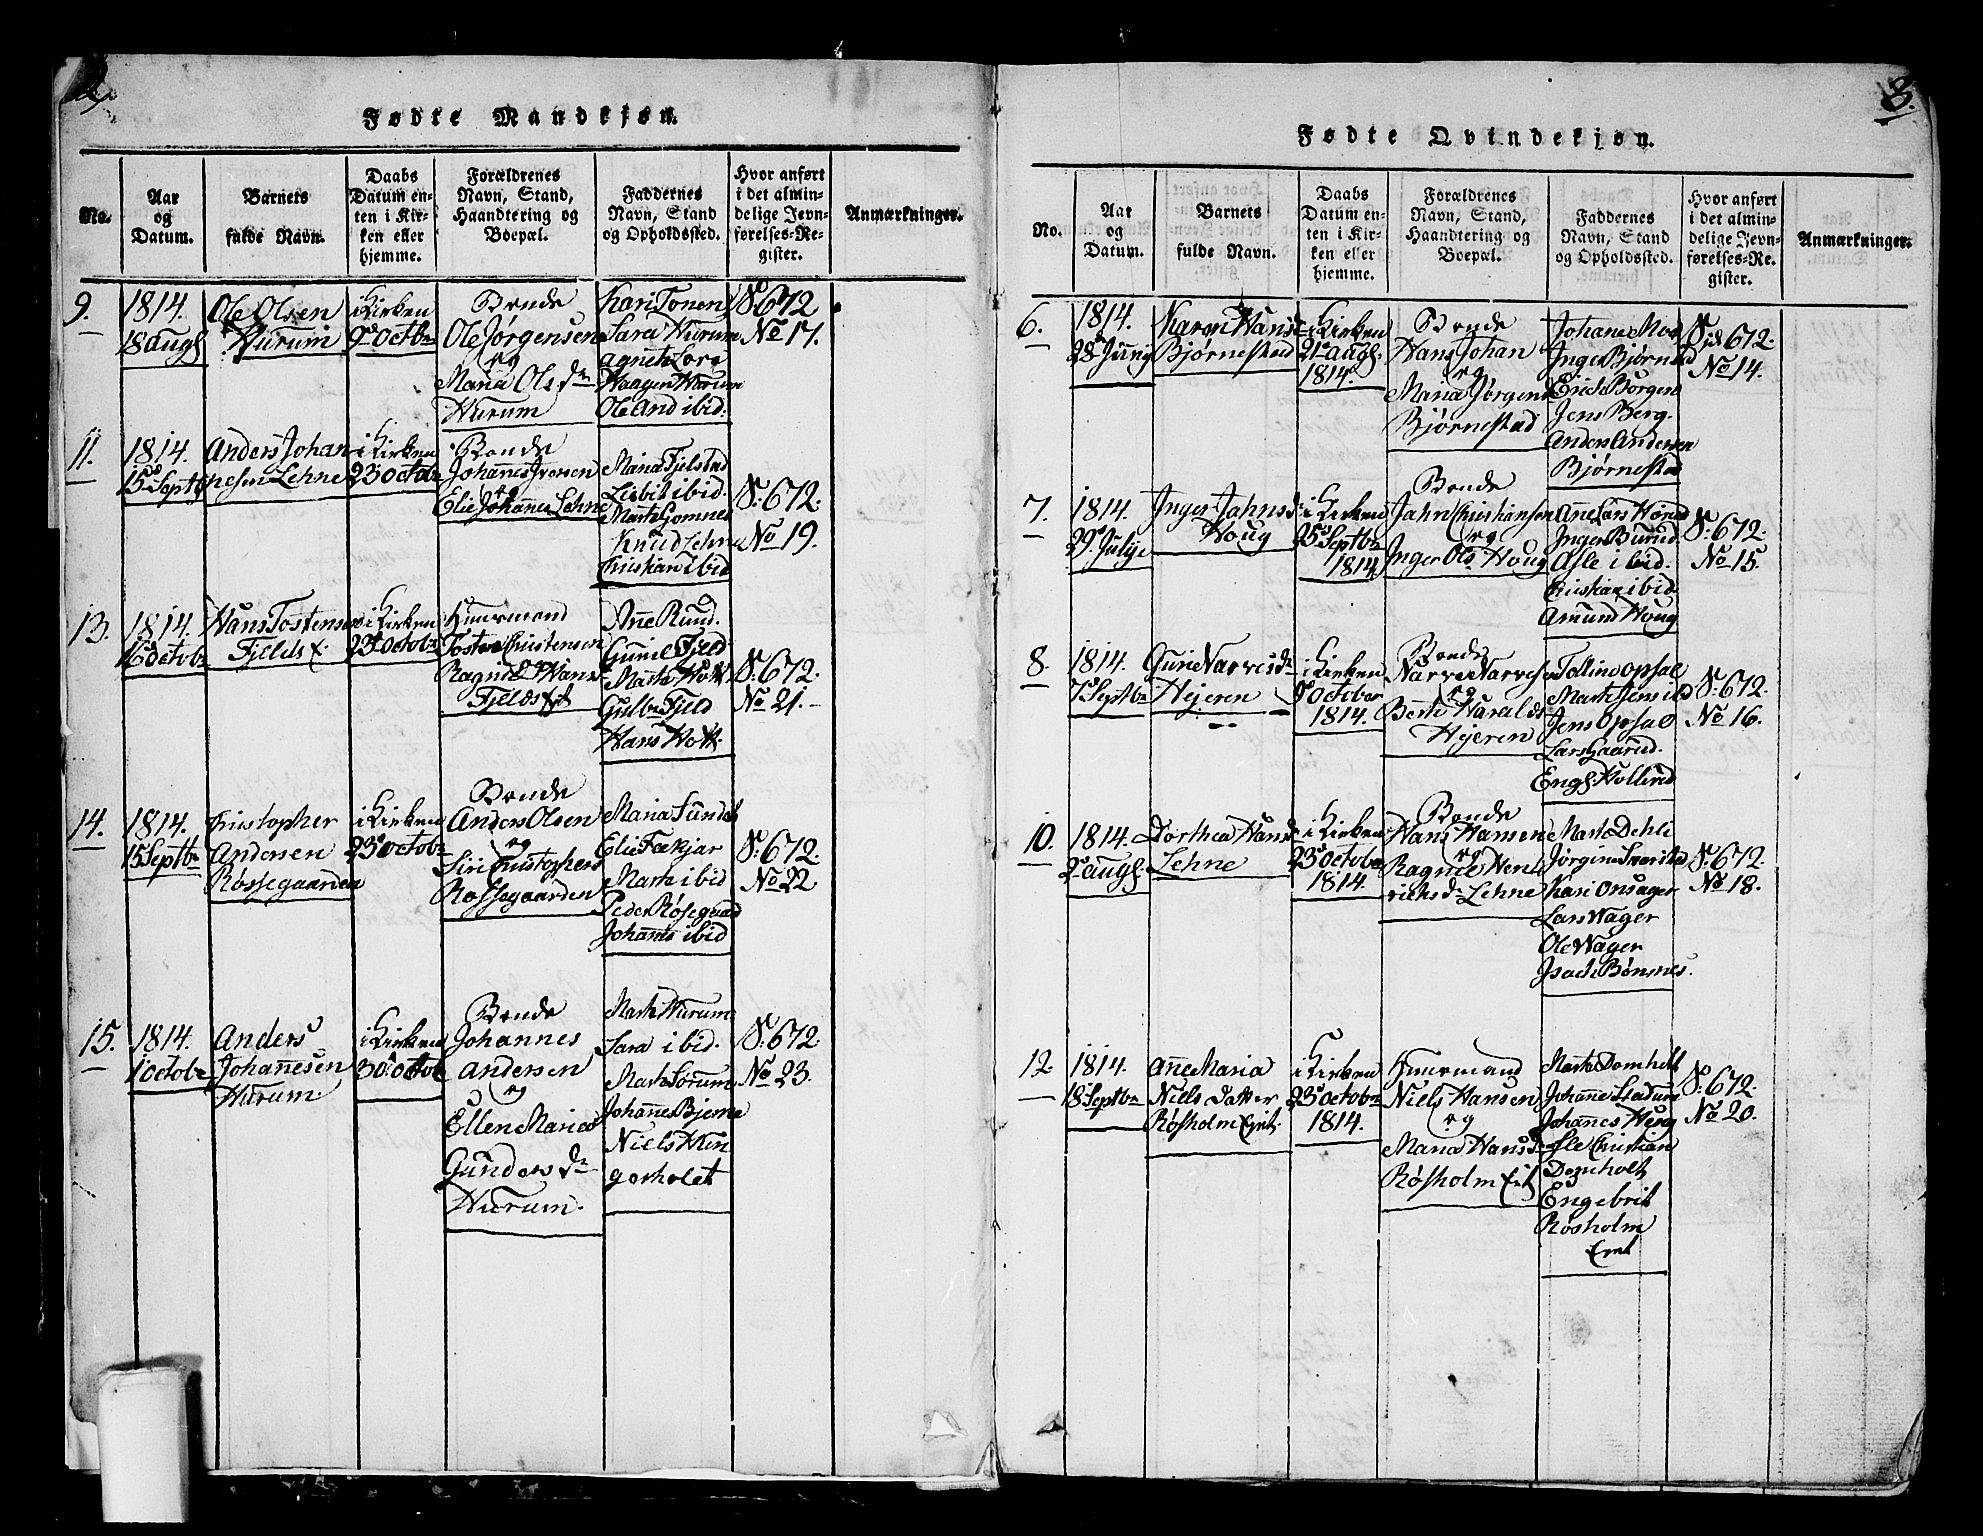 2.
Fødte Mandkjøn.
No.
Aar og Datum.
Barnets fulde Navn.
Daabs Datum enten i Kirken eller hjemme.
Forældrenes Navn, Stand, Haandtering og Boepæl.
Faddernes Navn, Stand og Opholdssted.
Hvor anført i det almindelige Jevnførelses-Register.
Anmærkninger.
9.
1814.
18 augs
Ole Olsen
Hurum
i Kirken
9 octbr
Bonde
Ole Jørgensen
og
Maria Ols dr
Hurum
Kari Tonen
Sara Hurum
agnethe
Haagen Hurum
Ole And ibid.
S: 672
No 17.
11.
1814.
15 Septbr
Anders Johan
nesen Lehne
i Kirken
23 octobr
Bonde
Johannes Iversen
og
Elie Johannes Lehne
Maria Fjelstad
Lisbit ibid.
Marte Gomnes
Knud Lehne
Christian ibid
S: 672.
No 19.
13.
1814.
16 octobr
Hans Tostensen
Fjelds
i Kirken
23 octobr
Huusmand
Tosten Christensen
Ragnild Hans
Fjelds
Anne Rund.
Gunil Fjeld
Marte
Gulbr Fjeld
Hans
S: 672.
No 21.
14.
1814.
15 Septbr
Christopher
Andersen
Røssegaarden
i Kirken
23 octobr
Bonde
Anders Olsen
og
Siri Christophers
Røssegaarden
Maria
Elie Fækjar
Marte ibid
Peder Røsegaard
Johannes ibid
S: 672.
No 22
15.
1814.
1 octobr
Anders
Johannesen
Hurum.
i Kirken
30 octob
Bonde
Johannes
Andersen
og
Ellen Maria
Gunders dr
Hurum.
Marte Hurum
Sara ibid.
Marte Sorum
Johanne Bjerne
Niels Hun
gerholdt
S: 672
No 23.
3.
Fødte Qvindekjøn.
No.
Aar og Datum.
Barnets fulde Navn.
Daabs Datum enten i Kirken eller hjemme.
Forældrenes Navn, Stand, Haandtering og Boepæl.
Faddernes Navn, Stand og Opholdssted.
Hvor anført i det almindelige Jevnførelses-Register.
Anmærkninger.
6.
1814.
28 Juny
Karen Hans
Bjørnestad
i Kirken
21 augs.
1814.
Bonde
Hans Johan
og
Maria Jørgens
Bjørnestad
Johane Moe
Inge Bjørnestad
Erich Borgen
Jens Berg.
Anders Andersen
Bjørnestad
672.
No 14.
7.
1814.
29 Julye
Inger Jahns d
Houg
i Kirken
25 Septbr
1814
Bonde
Jahn Christiansen
og
Inger Ols Houg
Ane Lars
Inger Burud
Asle ibid.
Christian ibid
Amund Houg
S: 672.
No 15.
8.
1814.
7 Septbr
Guri Narves dr
Hjeren
i Kirken
9 october
1814.
Bonde
Narve Narvesen
og
Berte Haralds
Hjeren
Toline Opsal
Marte
Jens Opsal
Lars Gaarud.
Engs. Hollerud
S: 672.
No 16.
10.
1814.
2 augs.
Dorthea Hansd
Lehne
i Kirken
23 october
1814.
Bonde
Hans Hansen
og
Ragnil Hend
richs dr Lehne
Marte Dehli
Jørgine
Kari Onsager
Lars Wager
Ole Wager
Isach Bønsnes.
S: 672.
No 18.
12.
1814.
18 Septbr
Ane Maria
Niels Datter
Røsholm Eiet.
i Kirken
23 octobr
1814.
Huusmand
Niels Hansen
og
Maria Hansd
Røsholm Eiet
Marte Domholt
Johanne Stadum
Johannes
Christian
Domholt
Engebrit
Røsholm
Eiet
S: 672.
No 20.